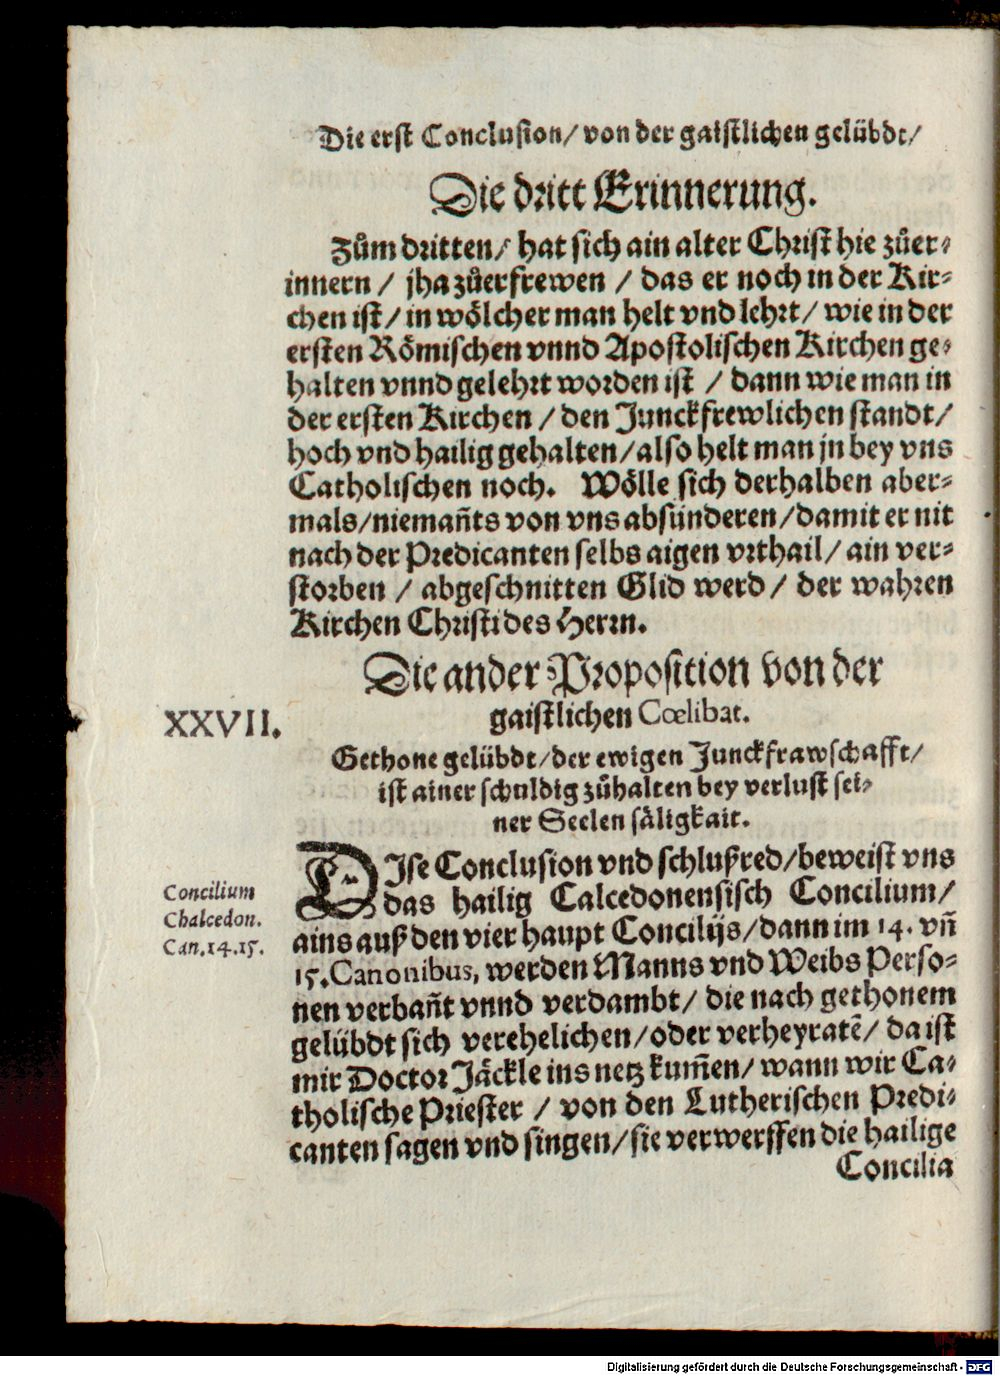 Die erst Conclusion/ von der gaistlichen gelübdt/
Die dritt Erinnerung.
Zům dritten/ hat sich ain alter Christ hie zůer-
innern / jha zůerfrewen / das er noch in der Kir-
chen ist/ in wölcher man helt vnd lehrt/ wie in der
ersten Römischen vnnd Apostolischen Kirchen ge-
halten vnnd gelehrt worden ist / dann wie man in
der ersten Kirchen / den Junckfrewlichen standt/
hoch vnd hailig gehalten/ also helt man jn bey vns
Catholischen noch. Wölle sich derhalben aber-
mals/ niemañts von vns absünderen/ damit er nit
nach der Predicanten selbs aigen vrthail/ ain ver-
storben / abgeschnitten Glid werd / der wahren
Kirchen Christi des Herrn.
Die ander Proposition von der
XXVII. gaistlichen Cœlibat.
Gethone gelübdt/ der ewigen Junckfrawschafft/
ist ainer schuldig zůhalten bey verlust sei-
ner Seelen säligkait.
DIse Conclusion vnd schlußred/ beweist vns
Concilium
Chalcedon.
Can. 14. 15.
das hailig Calcedonensisch Concilium/
ains auß den vier haupt Concilijs/ dann im 14. vñ
15. Canonibus, werden Manns vnd Weibs Perso-
nen verbañt vnnd verdambt/ die nach gethonem
gelübdt sich verehelichen/ oder verheyratẽ/ da ist
mir Doctor Jäckle ins netz kum̃en/ wann wir Ca-
tholische Priester / von den Lutherischen Predi-
canten sagen vnd singen/ sie verwerffen die hailige
Concilia
Digitalisierung gefördert durch die Deutsche Forschungsgemeinschaft - DFG